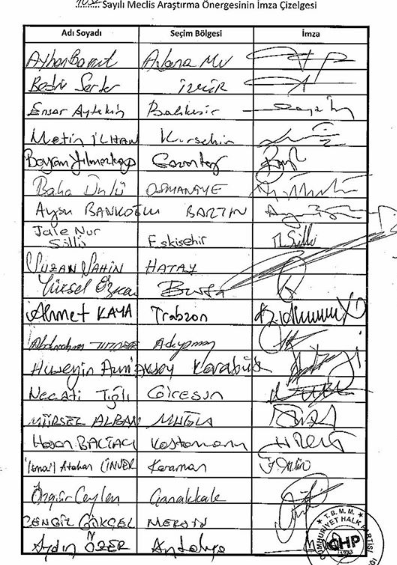 Sayılı Meclis Araştırma Önergesinin İmza Çizelgesi
Adı Soyadı Seçim Bölgesi İmza
Ayhan Barut Adana Mv
Bedri Serter İzmir
Ensar Aytekin Balıkesir
Metin İLHAN Kırşehir
Bayram Yılmazkaya Gaziantep
Baha Ünlü OSMANİYE
Aysu BANKOĞLU BARTIN
Jale Nur Süllü Eskişehir J. Süllü
SUZAN ŞAHİN HATAY
Yüksel Özkan Bursa
Ahmet KAYA Trabzon
Abdurrahman TUTDERE Adıyaman
Hüseyin Avni AKSOY Karabük
Necati Tığlı GİRESUN
MÜRSEL ALBAN MUĞLA
Hasan BALTACI Kastamonu
İsmail Atakan ÜNVER Karaman
Özgür Ceylan Çanakkale
CENGİZ GÖKÇEL MERSİN
Aydın ÖZER Antalya
T.B.M.M. CUMHURİYET HALK PARTİSİ
CHP